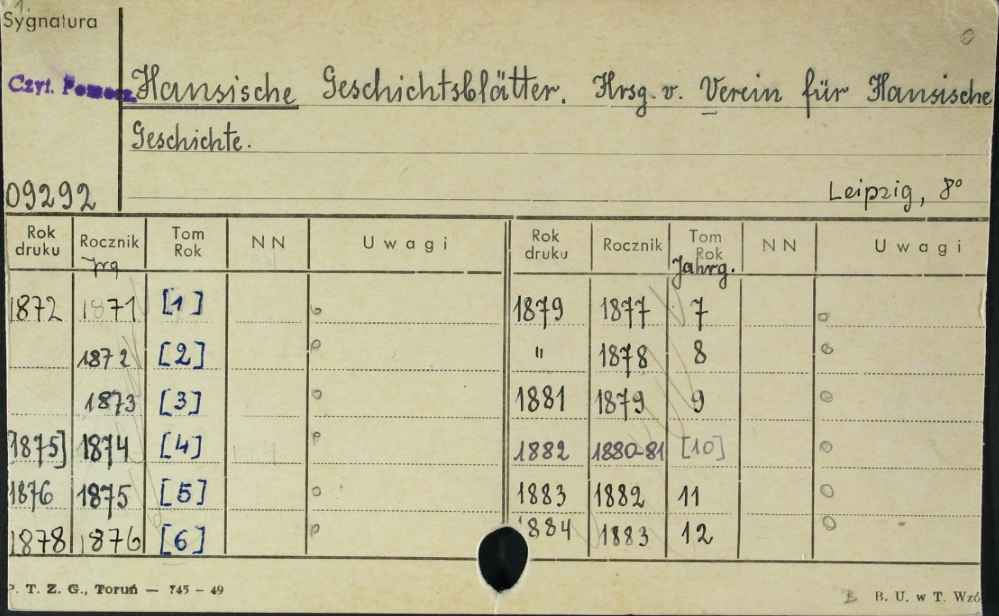 Sygnatura
Czyt. Pomorz.
Hansische Geschichtsblätter. Hrsg. v. Verein für Hansische
Geschichte.
09292
Leipzig, 8°
Rok druku Rocznik Jrg Tom Rok NN Uwagi Rok druku Rocznik Tom Rok Jahrg. NN Uwagi
1872 1871 [1] 1879 1877 7
1872 [2] " 1878 8
1873 [3] 1881 1879 9
1875] 1874 [4] 1882 1880-81 [10]
1876 1875 [5] 1883 1882 11
1878 1876 [6] 1884 1883 12
P. T. Z. G., Toruń — 745 - 49
B. U. w T.